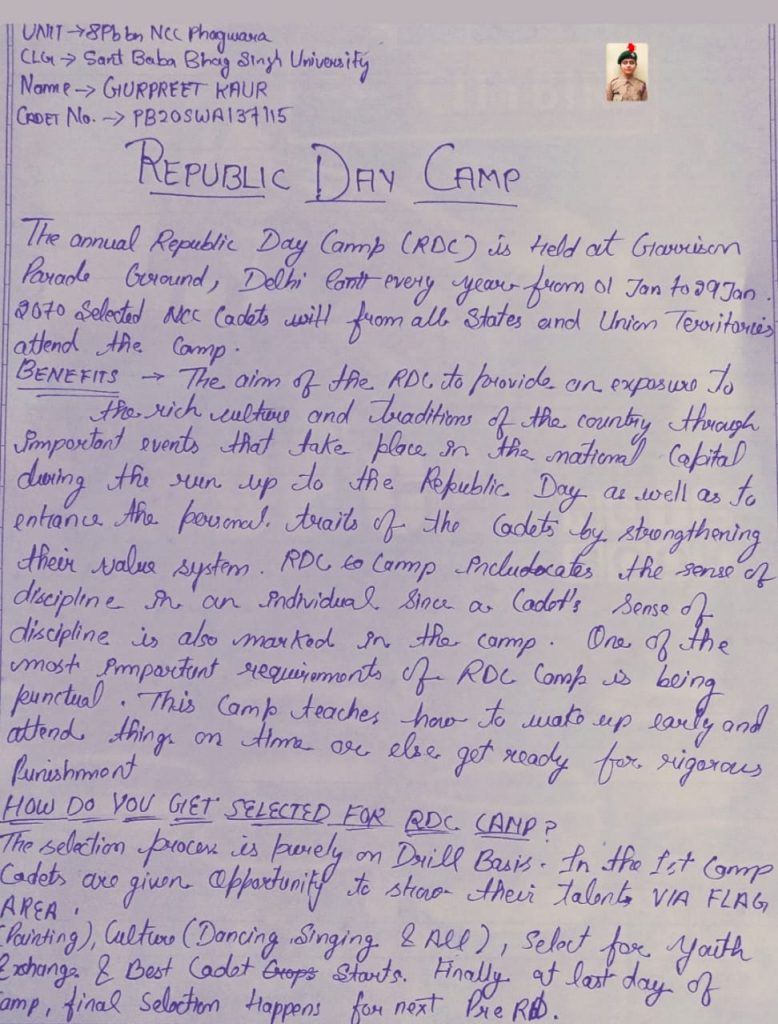 UNIT → 8Pb bn NCC Phagwara
CLG → Sant Baba Bhag Singh University
Name → GURPREET KAUR
CADET No. → PB20SWA137115
REPUBLIC DAY CAMP
The annual Republic Day Camp (RDC) is Held at Garrison
Parade Ground, Delhi Cantt every year from 01 Jan to 29 Jan.
2070 Selected NCC Cadets will from all States and Union Territories
attend the Camp.
BENEFITS → The aim of the RDC to provide an exposure To
the rich culture and traditions of the country through
important events that take place in the national Capital
during the run up to the Republic Day as well as to
entrance the personal traits of the Cadets by strengthening
their value system. RDC to Camp includocates the sense of
discipline in an individual Since a Cadet's sense of
discipline is also marked in the camp. One of the
most important requirements of RDC Camp is being
punctual. This Camp teaches how to wake up early and
attend things on time or else get ready for rigorous
Punishment
HOW DO YOU GET SELECTED FOR RDC CAMP?
The selection process is purely on Drill Basis. In the 1st Camp
Cadets are given opportunity to show their talents VIA FLAG
AREA.
(Painting), Culture (Dancing, Singing & All), Select for Youth
Exchange & Best Cadet Starts. Finally at last day of
amp, final Selection Happens for next Pre RD.